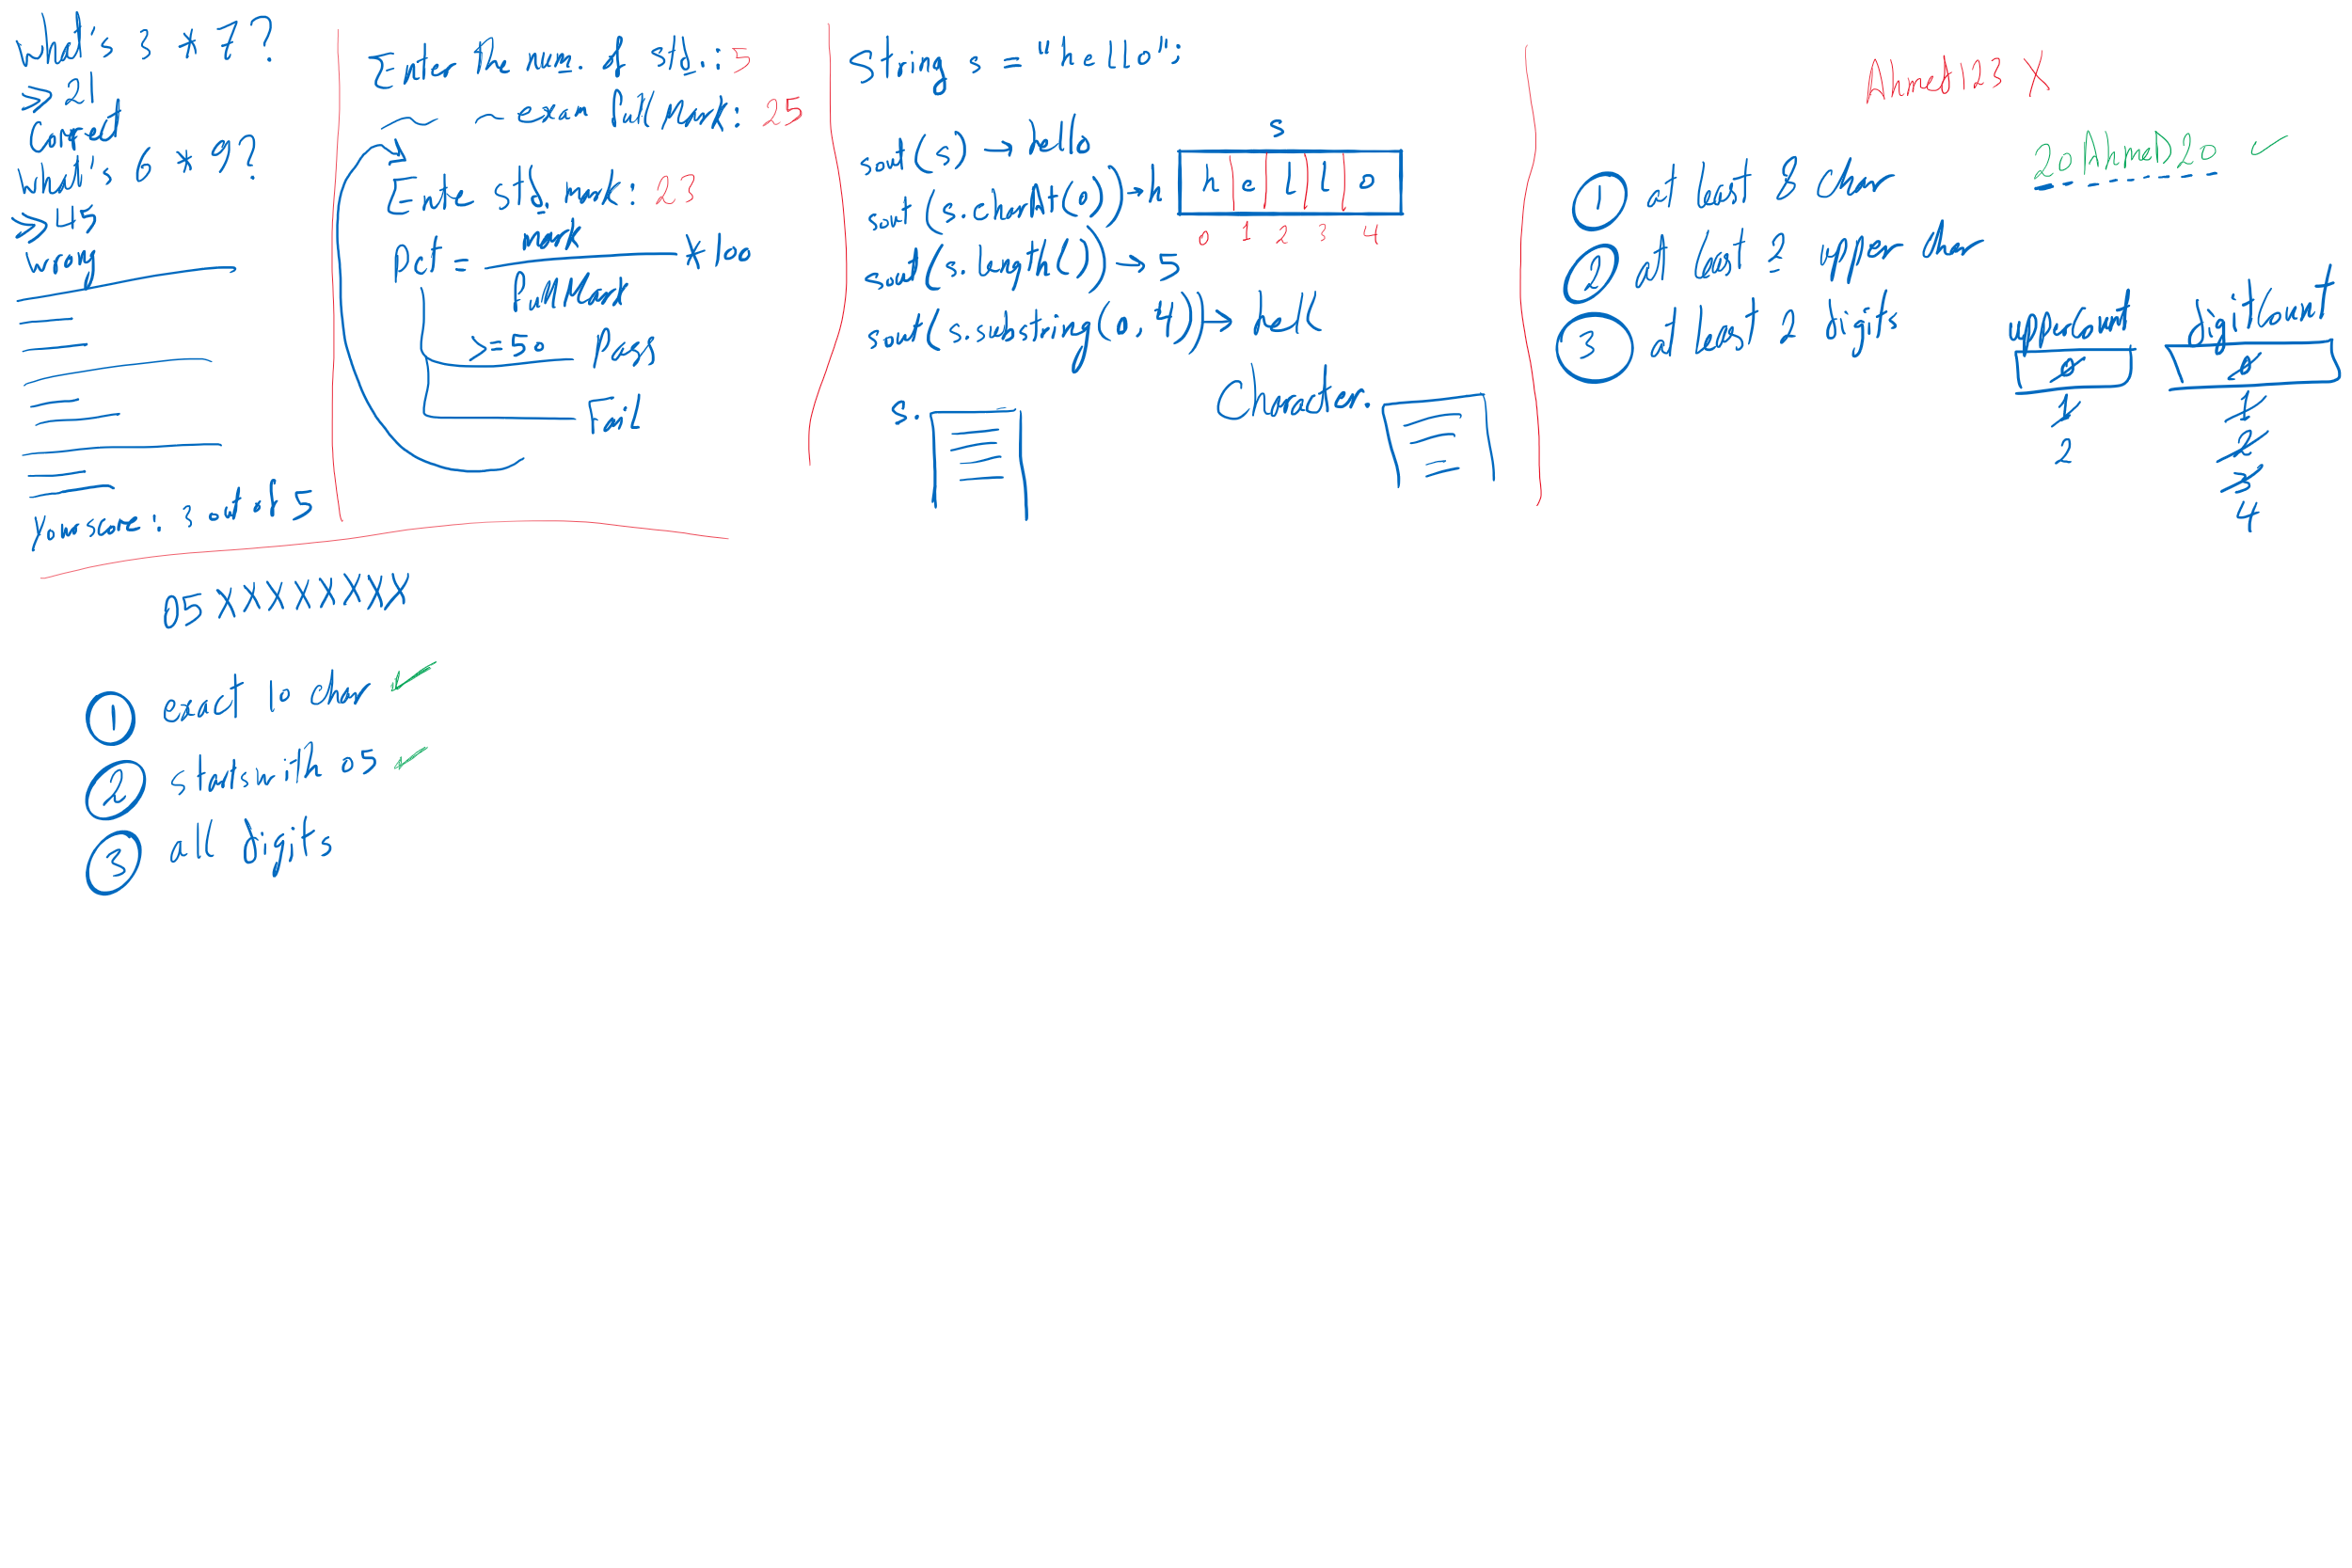 What's 3 * 7?
>> 21
Correct
What's 6 * 9?
>> 45
wrong
Your score: 3 out of 5
Enter the num. of std.: 5
exam full Mark: 25
Ente std. mark: 23
Pct = mark / full Mark * 100
>=50 Pass
Fail
String s = "hello";
sout(s) → hello
sout(s.charAt(0)) → h
sout(s.length()) → 5
sout(s.substring(0,4)) → hell
s
h e l l o
0 1 2 3 4
s.
Character.
Ahmed123 X
20AhmeD20 ✓
1 at least 8 char
2 at least 2 upper char
3 at least 2 digits
upperCount digitCount
0 0
1 1
2 2
3
4
05XXXXXXXX
1 exact 10 char ✓
2 startswith 05 ✓
3 all digits